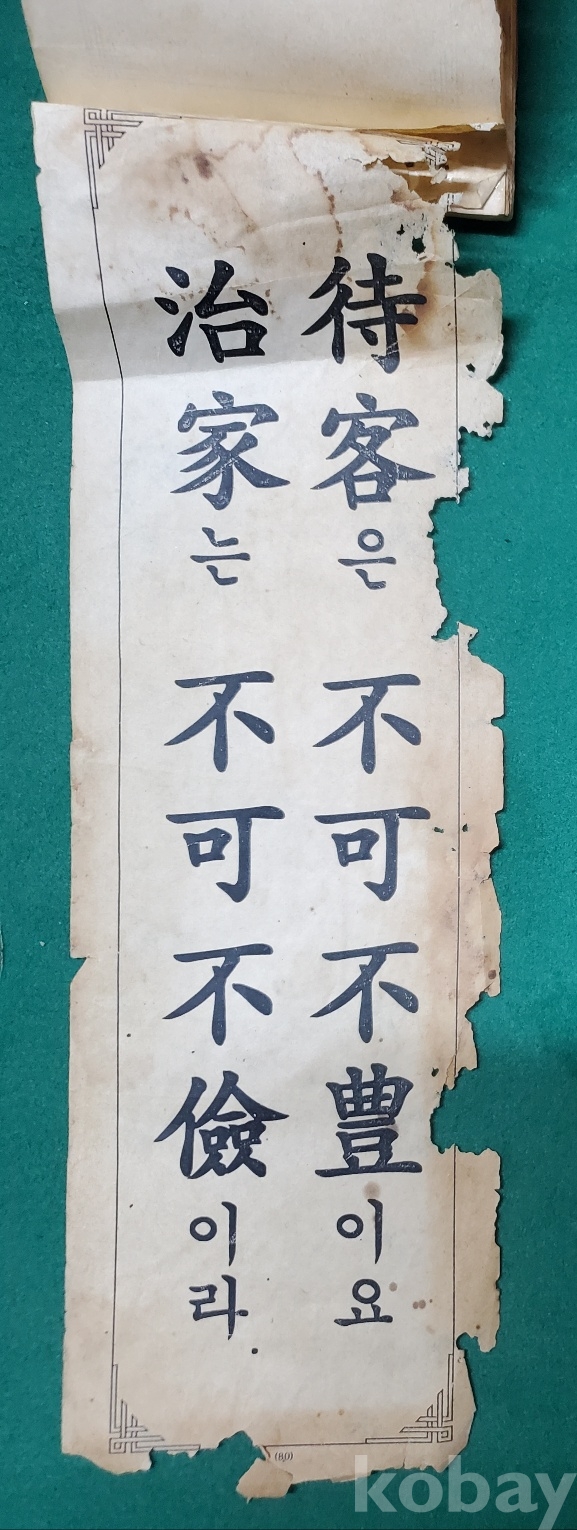 待客은 不可不豊이요
治家는 不可不儉이라
(80)
kobay